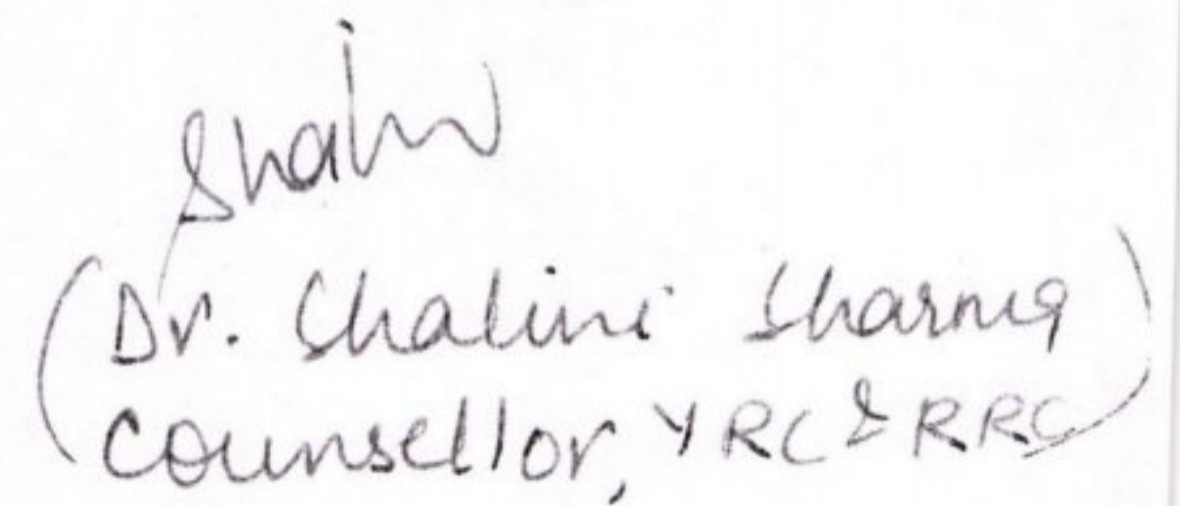 Shalini
(Dr. Shalini Sharma
Counsellor, YRC & RRC)